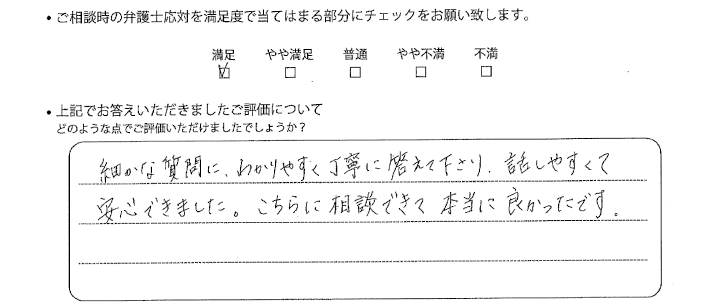 • ご相談時の弁護士応対を満足度で当てはまる部分にチェックをお願い致します。
満足 やや満足 普通 やや不満 不満
☑ □ □ □ □
• 上記でお答えいただきましたご評価について
どのような点でご評価いただけましたでしょうか？
細かな質問に、わかりやすく丁寧に答えて下さり、話しやすくて
安心できました。こちらに相談できて本当に良かったです。